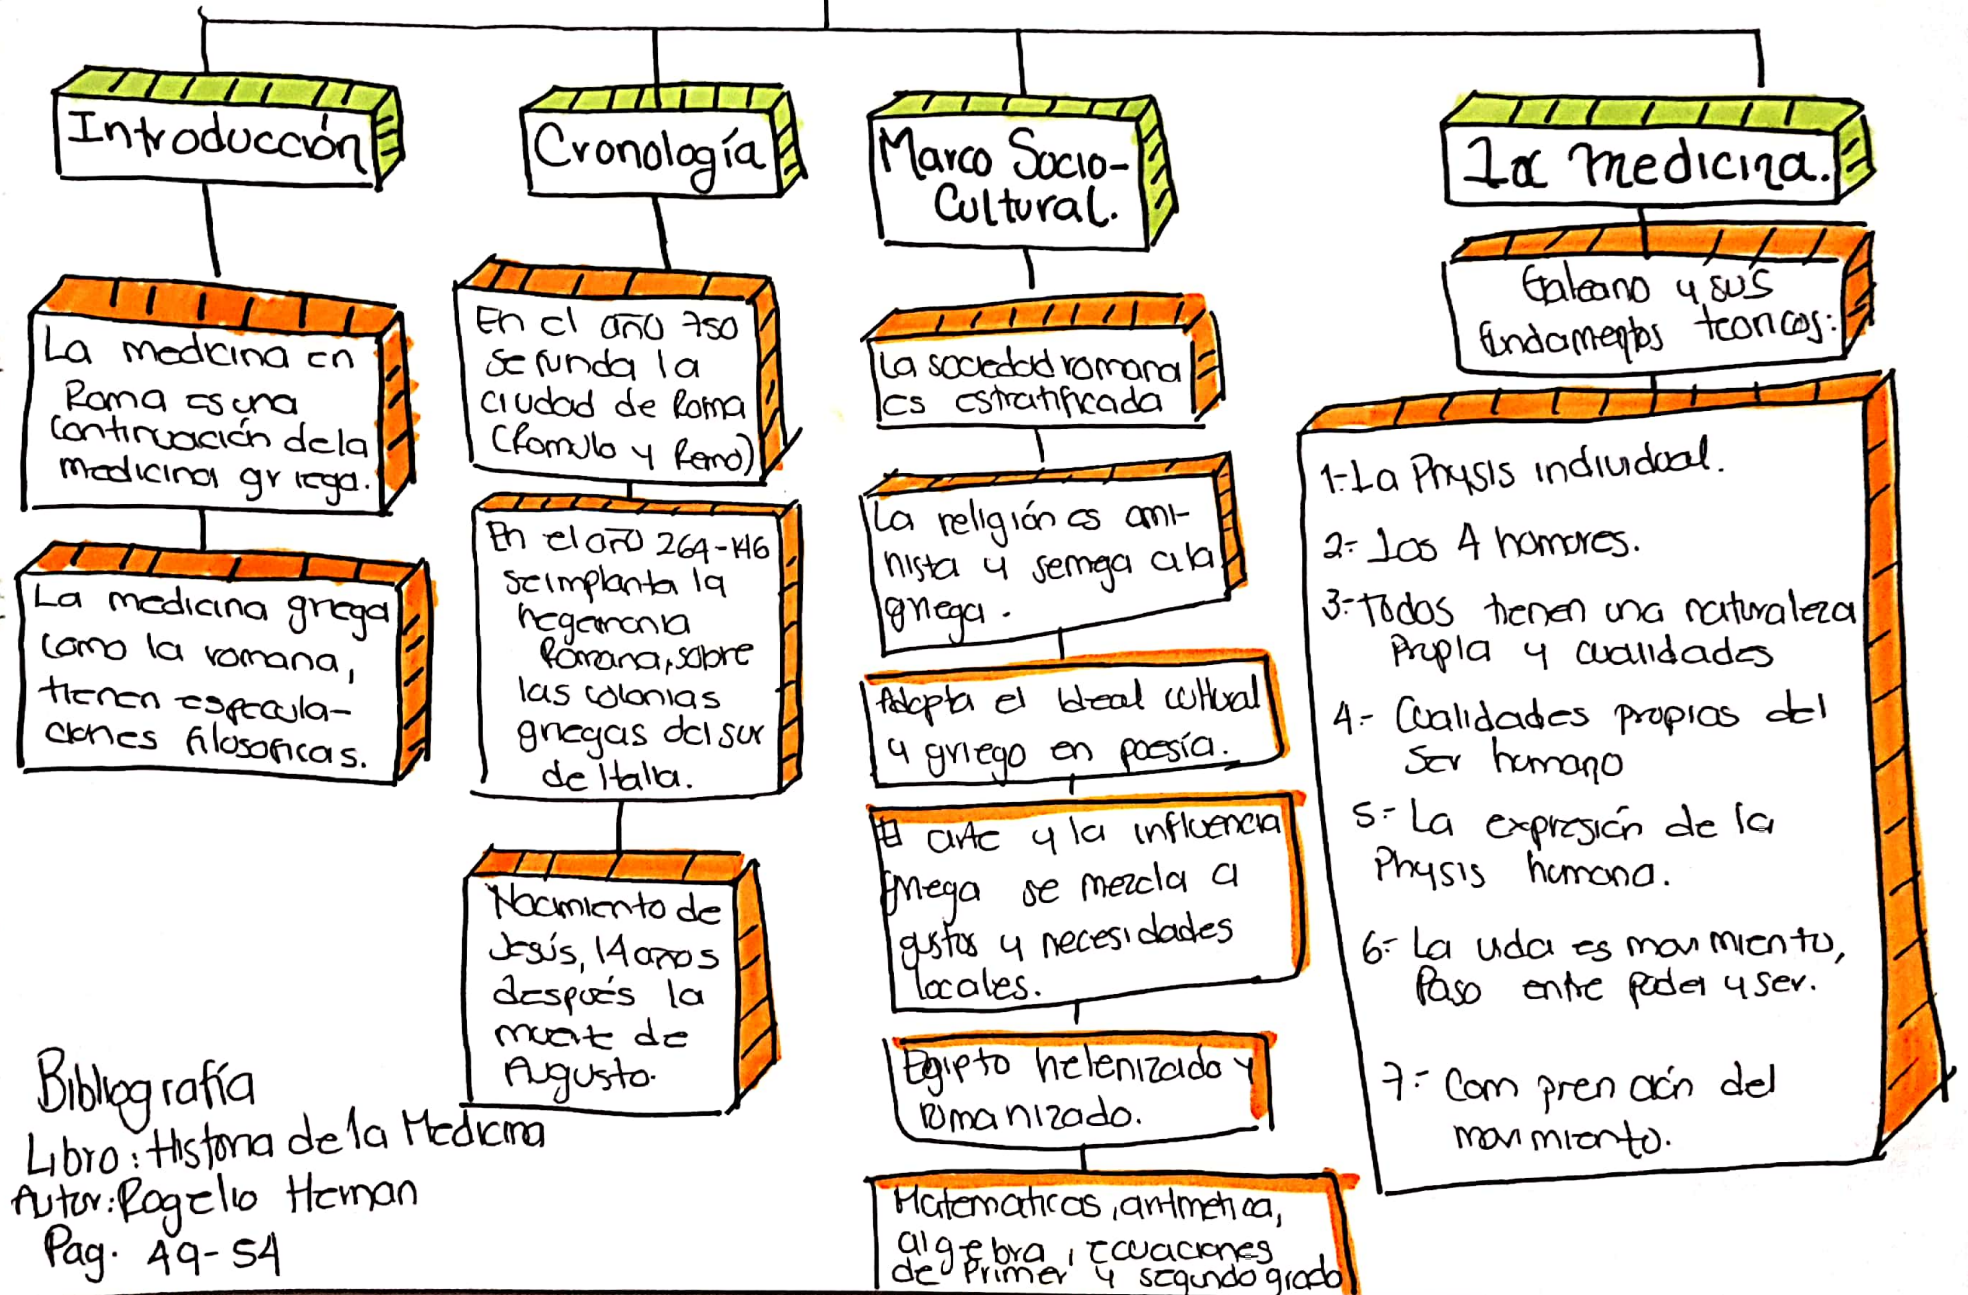 Introducción
La medicina en
Roma es una
continuación de la
medicina griega.
La medicina griega
como la romana,
tienen especula-
ciones filosoficas.
Cronología
En el año 750
se funda la
ciudad de Roma
(Romulo y Remo)
En el año 264-146
se implanta la
hegemonia
Romana, sobre
las colonias
griegas del sur
de Italia.
Nacimiento de
Jesús, 14 años
después la
muerte de
Augusto.
Marco Socio-
Cultural.
La sociedad romana
es estratificada
La religión es ani-
mista y semeja a la
griega.
Adopta el ideal cultural
y griego en poesía.
El arte y la influencia
griega se mezcla a
gustos y necesidades
locales.
Egipto helenizado y
romanizado.
Matematicas, aritmetica,
algebra, ecuaciones
de Primer y segundo grado
La medicina.
Galeano y sus
fundamentos teoricos:
1-La Physis individual.
2- Los 4 homores.
3-Todos tienen una naturaleza
Propia y cualidades
4- Cualidades propias del
ser humano
5- La expresión de la
Physis humana.
6- La vida es movimiento,
Paso entre poder y ser.
7- Comprención del
movimiento.
Bibliografía
Libro: Historia de la Medicina
Autor: Rogelio Hernan
Pag. 49-54